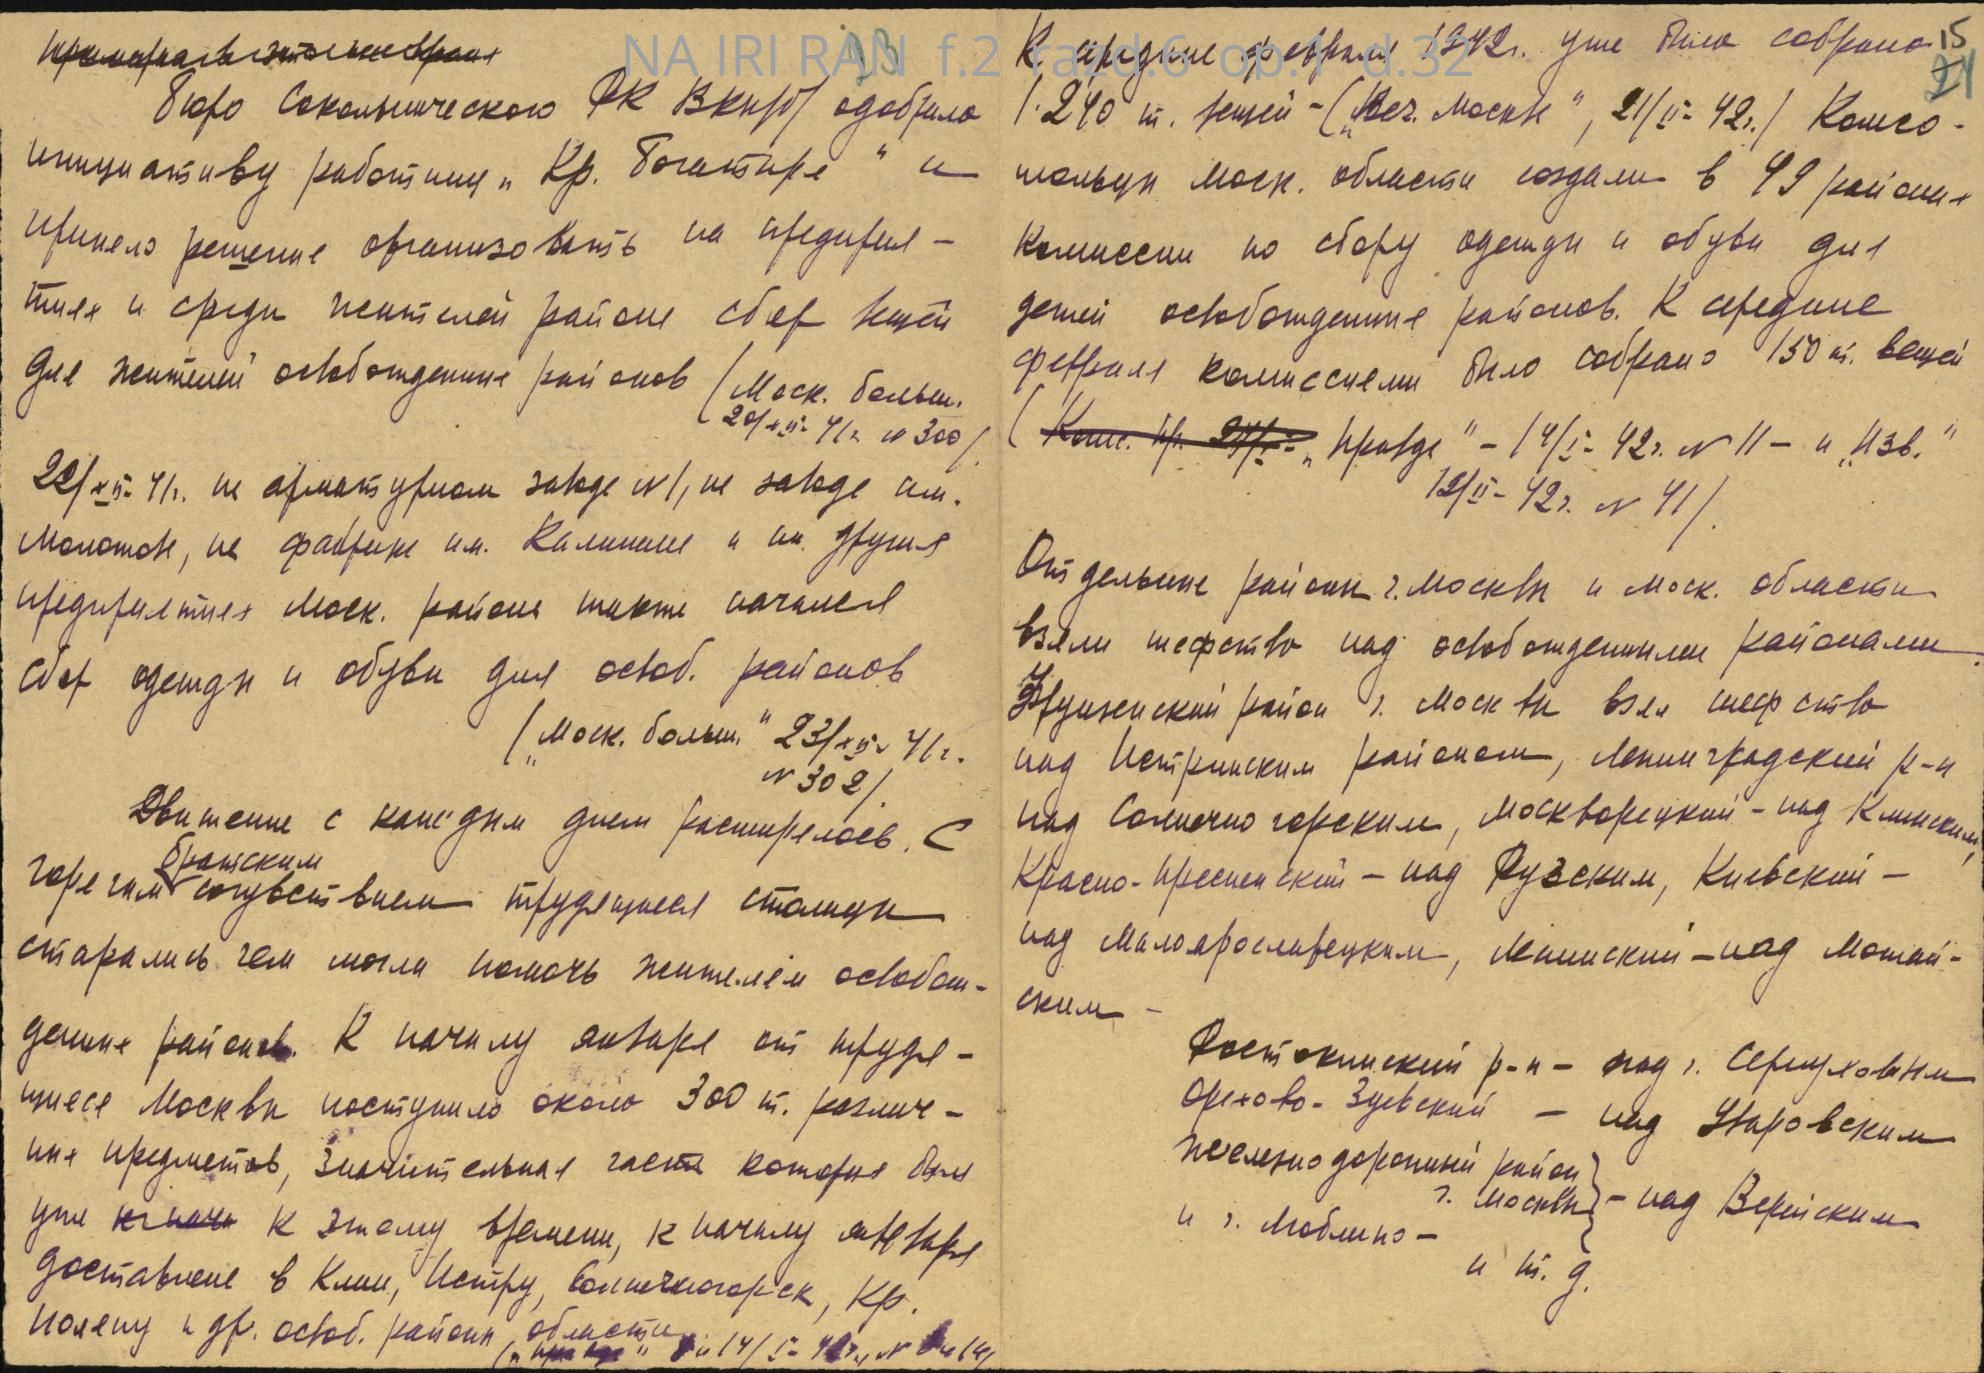 NA IRI RAN f.2 razd.6 op.1 d.32
23
Бюро Сокольнического РК ВКП/б/ одобрило
инициативу работниц „Кр. Богатыря" и
приняло решение организовать на предприя-
тиях и среди жителей района сбор вещей
для жителей освобожденных районов (Моск. больш.
20/XII-41г. N 300/.
22/XII-41г. на арматурном заводе N1, на заводе им.
Молотова, на фабрике им. Калинина и на других
предприятиях Моск. района также начался
сбор одежды и обуви для освоб. районов
(„Моск. больш." 23/XII-41г.
N 302/.
Движение с каждым днем расширялось. С
братским
горячим сочувствием трудящиеся столицы
старались чем могли помочь жителям освобож-
денных районов. К началу января от трудя-
щихся Москвы поступило около 300 т. различ-
ных предметов, значительная часть которых была
уже к этому времени, к началу января
доставлена в Клин, Истру, Солнечногорск, Кр.
Поляну и др. освоб. районы области
(„Правда" и 14/I-42г., N и 14/
15
24
К середине февраля 1942г. уже было собрано
1.240 т. вещей - („Веч. Москва", 21/II-42г./ Комсо-
мольцы Моск. области создали в 49 районах
комиссии по сбору одежды и обуви для
детей освобожденных районов. К середине
февраля комиссиями было собрано 150 т. вещей
(Комс. пр. „Правда" - 14/I-42г. N 11 - и „Изв."
12/II-42г. N 41/.
Отдельные районы г. Москвы и Моск. области
взяли шефство над освобожденными районами.
Фрунзенский район г. Москвы взял шефство
над Истринским районом, Ленинградский р-н
над Солнечногорским, Москворецкий - над Клинским,
Красно-Пресненский - над Рузским, Киевский -
над Малоярославецким, Ленинский - над Можай-
ским -
Ростокинский р-н - над г. Серпуховым
Орехово-Зуевский - над Уваровским
Железнодорожный район
г. Москвы - над Верейским
и г. Люблино -
и т. д.